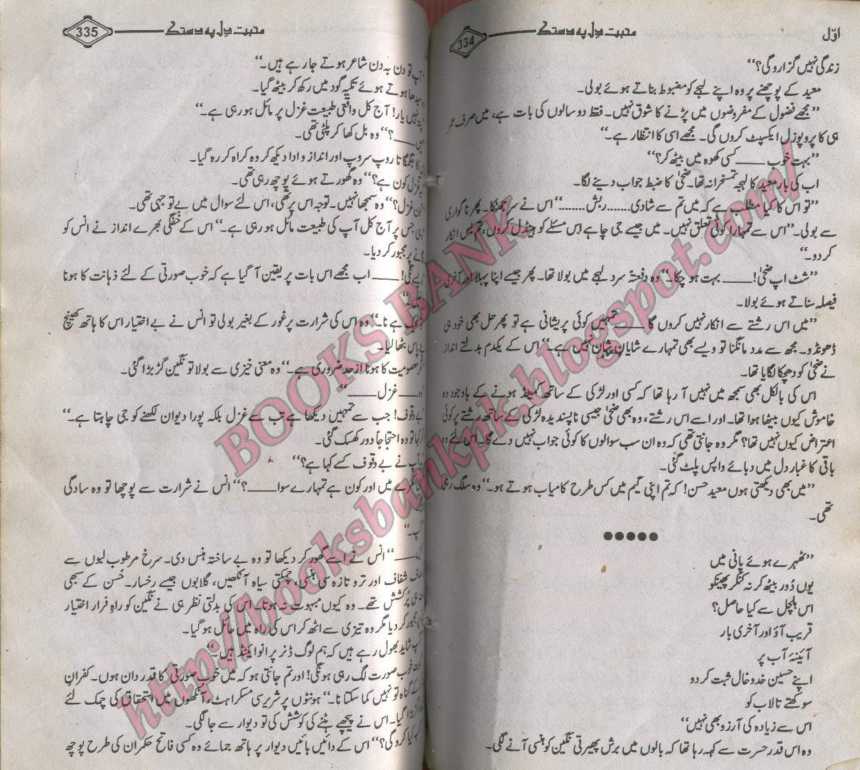 اوّل
محبت دل پہ دستک
334
زندگی نہیں گزارو گی؟‘‘
معید کے پوچھنے پر وہ اپنے لہجے کو مضبوط بناتے ہوئے بولی۔
’’مجھے فضول کے مفروضوں میں پڑنے کا شوق نہیں۔ فقط دو سالوں کی بات ہے، میں صرف عمر
ہی کا پروپوزل ایکسپٹ کروں گی۔ مجھے اسی کا انتظار ہے۔‘‘
’’بہت خوب ـــــــ کسی کھوہ میں بیٹھ کر؟‘‘
اب کی بار معید کا لہجہ تمسخرانہ تھا۔ ضحیٰ کا ضبط جواب دینے لگا۔
’’تو اس کا کیا مطلب ہے کہ میں تم سے شادی........ ربش........‘‘ اس نے سر جھٹکا۔ پھر ناگواری
سے بولی۔ ’’اس سے تمہارا کوئی تعلق نہیں۔ میں جیسے جی چاہے اس مسئلے کو ہینڈل کروں، تم بس انکار
کر دو۔‘‘
’’شٹ اپ ضحیٰ! ـــــــ بہت ہو چکا۔‘‘ وہ دفعتہً سرد لہجے میں بولا تھا۔ پھر جیسے اپنا پہلا اور آخری
فیصلہ سناتے ہوئے بولا۔
’’میں اس رشتے سے انکار نہیں کروں گا ـــــــ تمہیں کوئی پریشانی ہے تو پھر حل بھی خود ہی
ڈھونڈو۔ مجھ سے مدد مانگنا تو ویسے بھی تمہارے شایانِ شان نہیں ہے۔‘‘ اس کے یکدم بدلتے انداز
نے ضحیٰ کو دھچکا لگایا تھا۔
اس کی بالکل بھی سمجھ میں نہیں آ رہا تھا کہ کسی اور لڑکی کے ساتھ کمیٹڈ ہونے کے باوجود وہ
خاموش کیوں بیٹھا ہوا تھا۔ اور اسے اس رشتے، وہ بھی ضحیٰ جیسی ناپسندیدہ لڑکی کے ساتھ رشتے پر کوئی
اعتراض کیوں نہیں تھا؟ مگر وہ جانتی تھی کہ وہ ان سب سوالوں کا کوئی جواب نہیں دے گا۔ اس لئے وہ
باقی کا غبار دل میں دبائے واپس پلٹ گئی۔
’’میں بھی دیکھتی ہوں معید حسن! کہ تم اپنی گیم میں کس طرح کامیاب ہوتے ہو۔‘‘ وہ سلگ رہی
تھی۔
●●●●●
’’ٹھہرے ہوئے پانی میں
یوں دُور بیٹھ کر نہ کنکر پھینکو
اس ہلچل سے کیا حاصل؟
قریب آؤ اور آخری بار
آئینۂ آب پر
اپنے حسین خد و خال ثبت کر دو
سوکھتے تالاب کو
اس سے زیادہ کی آرزو بھی نہیں‘‘
وہ اس قدر حسرت سے کہہ رہا تھا کہ بالوں میں برش پھیرتی نگین کو ہنسی آنے لگی۔
محبت دل پہ دستک
335
آپ تو دن بہ دن شاعر ہوتے جا رہے ہیں۔‘‘
ہوتے ہوئے تکیہ گود میں رکھ کر بیٹھ گیا۔
یار! آج کل واقعی طبیعت غزل پر مائل ہو رہی ہے۔‘‘
؟‘‘ وہ بل کھا کر پلٹی تھی۔
روپ سروپ اور انداز و ادا دیکھ کر وہ کراہ کر رہ گیا۔
کون ہے؟‘‘ وہ گھورتے ہوئے پوچھ رہی تھی۔
غزل؟‘‘ وہ سمجھا نہیں۔ توجہ اس پر تھی، اس لئے سوال میں بے توجہی تھی۔
جس پر آج کل آپ کی طبیعت مائل ہو رہی ہے۔‘‘ اس کے خفگی بھرے انداز نے انس کو
پر مجبور کر دیا۔
ـــــــ اب مجھے اس بات پر یقین آ گیا ہے کہ خوب صورتی کے لئے ذہانت کا ہونا
ہے نا۔‘‘ وہ اس کی شرارت پر غور کے بغیر بولی تو انس نے بے اختیار اس کا ہاتھ کھینچ
پاس بٹھا لیا۔
معصومیت کا ہونا از حد ضروری ہے۔‘‘ وہ معنی خیزی سے بولا تو نگین گڑبڑا گئی۔
غزل ـــــــ‘‘
بے وقوف! جب سے تمہیں دیکھا ہے تب سے غزل بلکہ پورا دیوان لکھنے کو جی چاہتا ہے۔‘‘
تو وہ احتجاجاً دور کھسک گئی۔
آپ نے بے وقوف کسے کہا ہے؟‘‘
کمرے میں اور کون ہے تمہارے سوا ـــــــ؟‘‘ انس نے شرارت سے پوچھا تو وہ سادگی
ـــــــ‘‘ انس نے اسے گھور کر دیکھا تو وہ بے ساختہ ہنس دی۔ سرخ مرطوب لبوں سے
شفاف اور تر و تازہ سی ہنسی، چمکتی سیاہ آنکھیں، گلابوں جیسے رخسار۔ حُسن کے سبھی
پُرکشش تھے۔ وہ کیوں مبہوت نہ ہوتا۔ اس کی بدلتی نظر ہی نے نگین کو راہِ فرار اختیار
کر دیا مگر وہ تیزی سے اٹھ کر اس کی راہ میں حائل ہو گیا۔
شاید بھول رہے ہیں کہ ہم لوگ ڈنر پر انوائیٹڈ ہیں۔‘‘
خوب صورت لگ رہی ہو نگی! اور تم جانتی ہو کہ میں خوب صورتی کا قدر دان ہوں۔ کفرانِ
گناہ تو نہیں کما سکتا نا۔‘‘ ہونٹوں پر شریر سی مسکراہٹ، آنکھوں میں استحقاق کی چمک لئے
گیا۔ اس نے پیچھے ہٹنے کی کوشش کی تو دیوار سے جا لگی۔
کیا کرو گی؟‘‘ اس کے دائیں بائیں دیوار پر ہاتھ جمائے وہ کسی فاتح حکمران کی طرح پوچھ
BOOKS BANK
http://booksbankpk.blogspot.com/